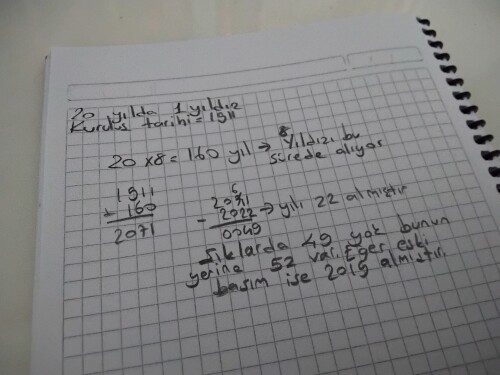 20 yılda 1 yıldız
Kuruluş tarihi = 1911
20 x 8 = 160 yıl → 8. Yıldızı bu
sürede alıyor
1911
+ 160
2071
6
2071
- 2022 → yılı 22 almıştır
0049
Şıklarda 49 yok bunun
yerine 52 var. Eğer eski
basım ise 2019 almıştır.